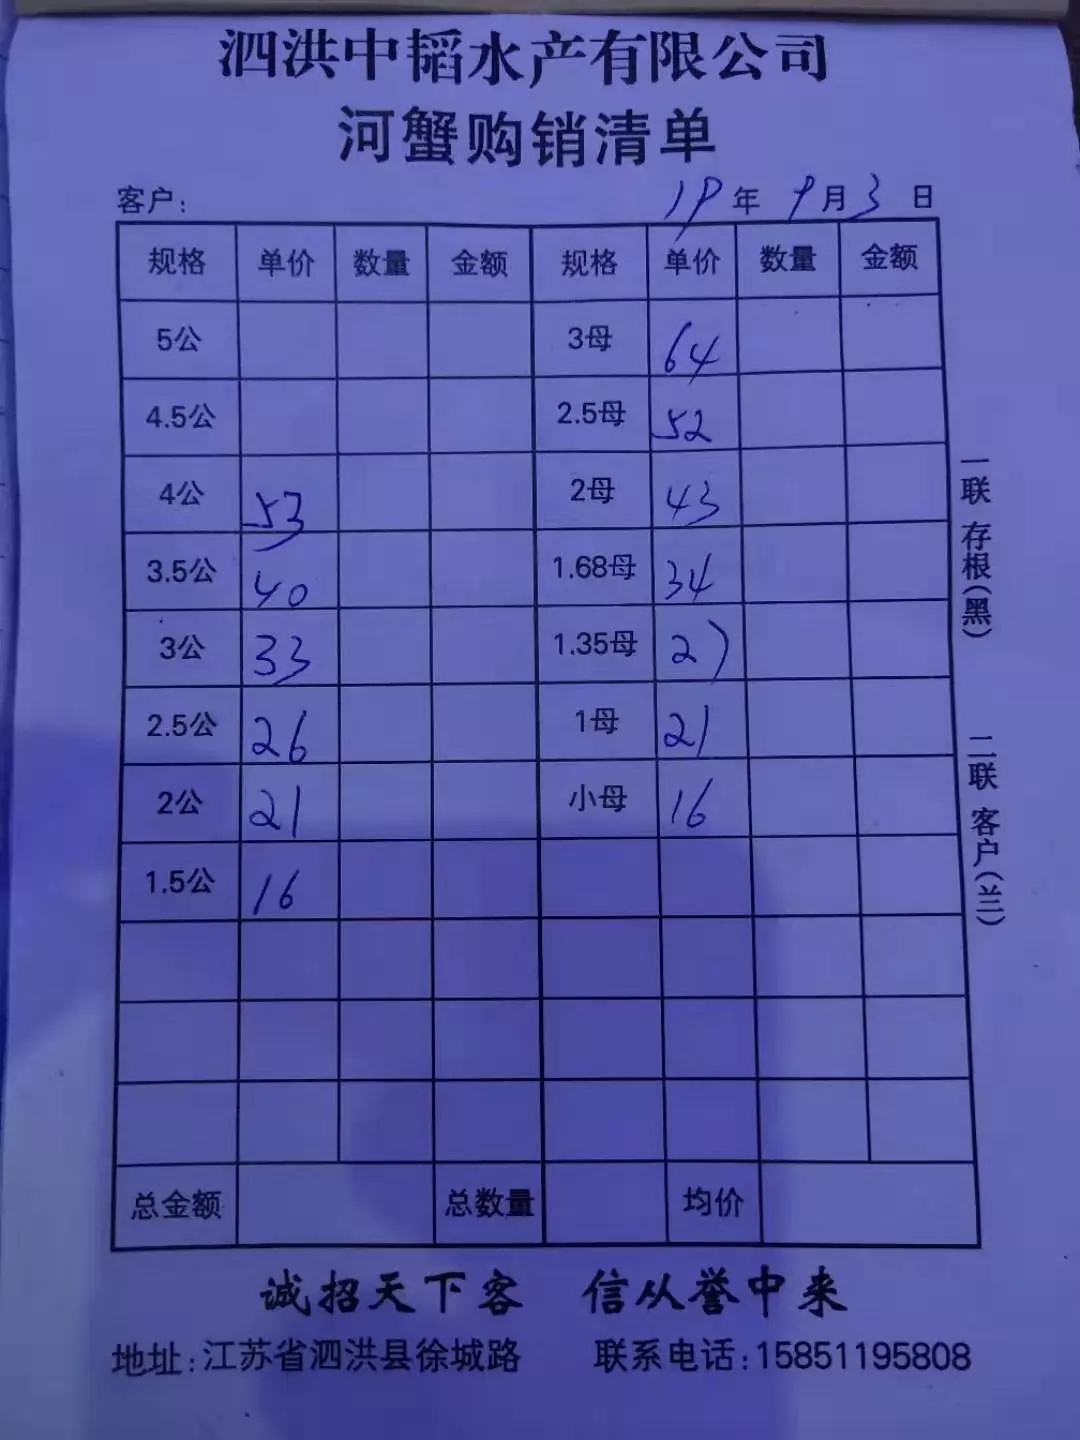 泗洪中韬水产有限公司
河蟹购销清单
客户: 19年9月3日
规格 单价 数量 金额 规格 单价 数量 金额
5公 3母 64
4.5公 2.5母 52
4公 53 2母 43
3.5公 40 1.68母 34
3公 33 1.35母 27
2.5公 26 1母 21
2公 21 小母 16
1.5公 16
总金额 总数量 均价
一联 存根(黑)
二联 客户(兰)
诚招天下客 信从誉中来
地址:江苏省泗洪县徐城路 联系电话:15851195808